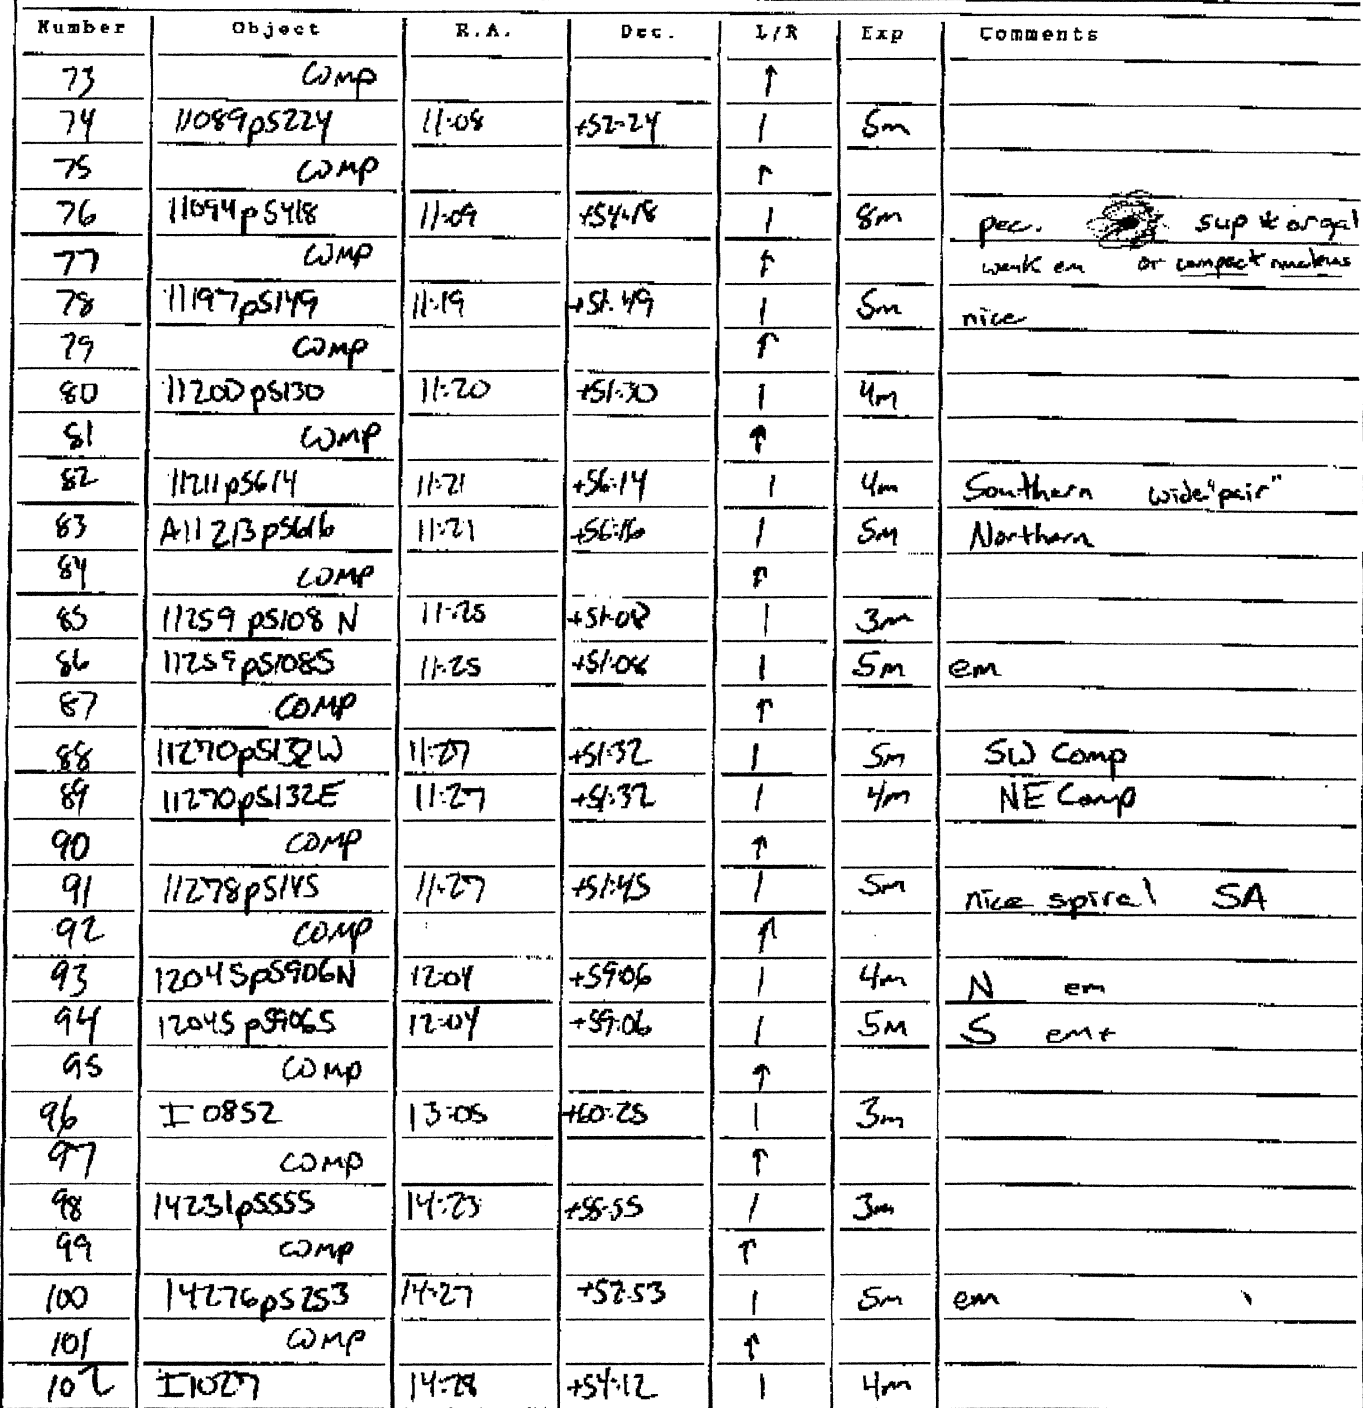 Number Object R.A. Dec. L/R Exp Comments
73 COMP ↑
74 11089p5224 11:08 +52:24 1 5m
75 COMP ↑
76 11094p5418 11:09 +54:18 1 8m pec. sup * or gal
77 COMP ↑ weak em or compact nucleus
78 11197p5149 11:19 +51:49 1 5m nice
79 COMP ↑
80 11200p5130 11:20 +51:30 1 4m
81 COMP ↑
82 11211p5614 11:21 +56:14 1 4m Southern wide "pair"
83 A11213p5616 11:21 +56:16 1 5m Northern
84 COMP ↑
85 11259p5108N 11:25 +51:08 1 3m
86 11259p5108S 11:25 +51:08 1 5m em
87 COMP ↑
88 11270p5132W 11:27 +51:32 1 5m SW Comp
89 11270p5132E 11:27 +51:32 1 4m NE Comp
90 COMP ↑
91 11278p5145 11:27 +51:45 1 5m nice spiral SA
92 COMP ↑
93 12045p5906N 12:04 +59:06 1 4m N em
94 12045p5906S 12:04 +59:06 1 5m S em+
95 COMP ↑
96 I0852 13:05 +60:25 1 3m
97 COMP ↑
98 14231p5555 14:23 +55:55 1 3m
99 COMP ↑
100 14276p5253 14:27 +52:53 1 5m em
101 COMP ↑
102 I1027 14:28 +54:12 1 4m